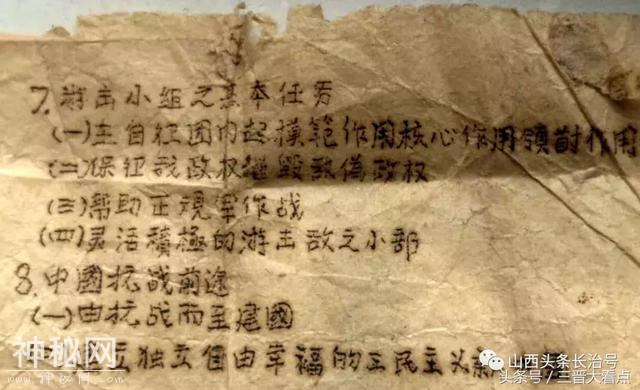 7. 游击小组之基本任务
(一)在自卫团内起模範作用核心作用領導作用
(二)保证我政权摧毁敌偽政权
(三)帮助正規軍作战
(四)灵活積極的游击敌之小部
8. 中國抗战前途
(一)由抗战而至建國
独立自由幸福的三民主义新
神秘网
山西头条长治号
头条号／三晋大看点